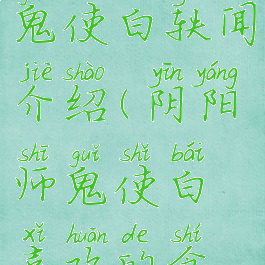 鬼使白轶闻
jiè shào yīn yáng
介绍(阴阳
shī guǐ shǐ bái
师鬼使白
xǐ huān de shí
喜欢的食